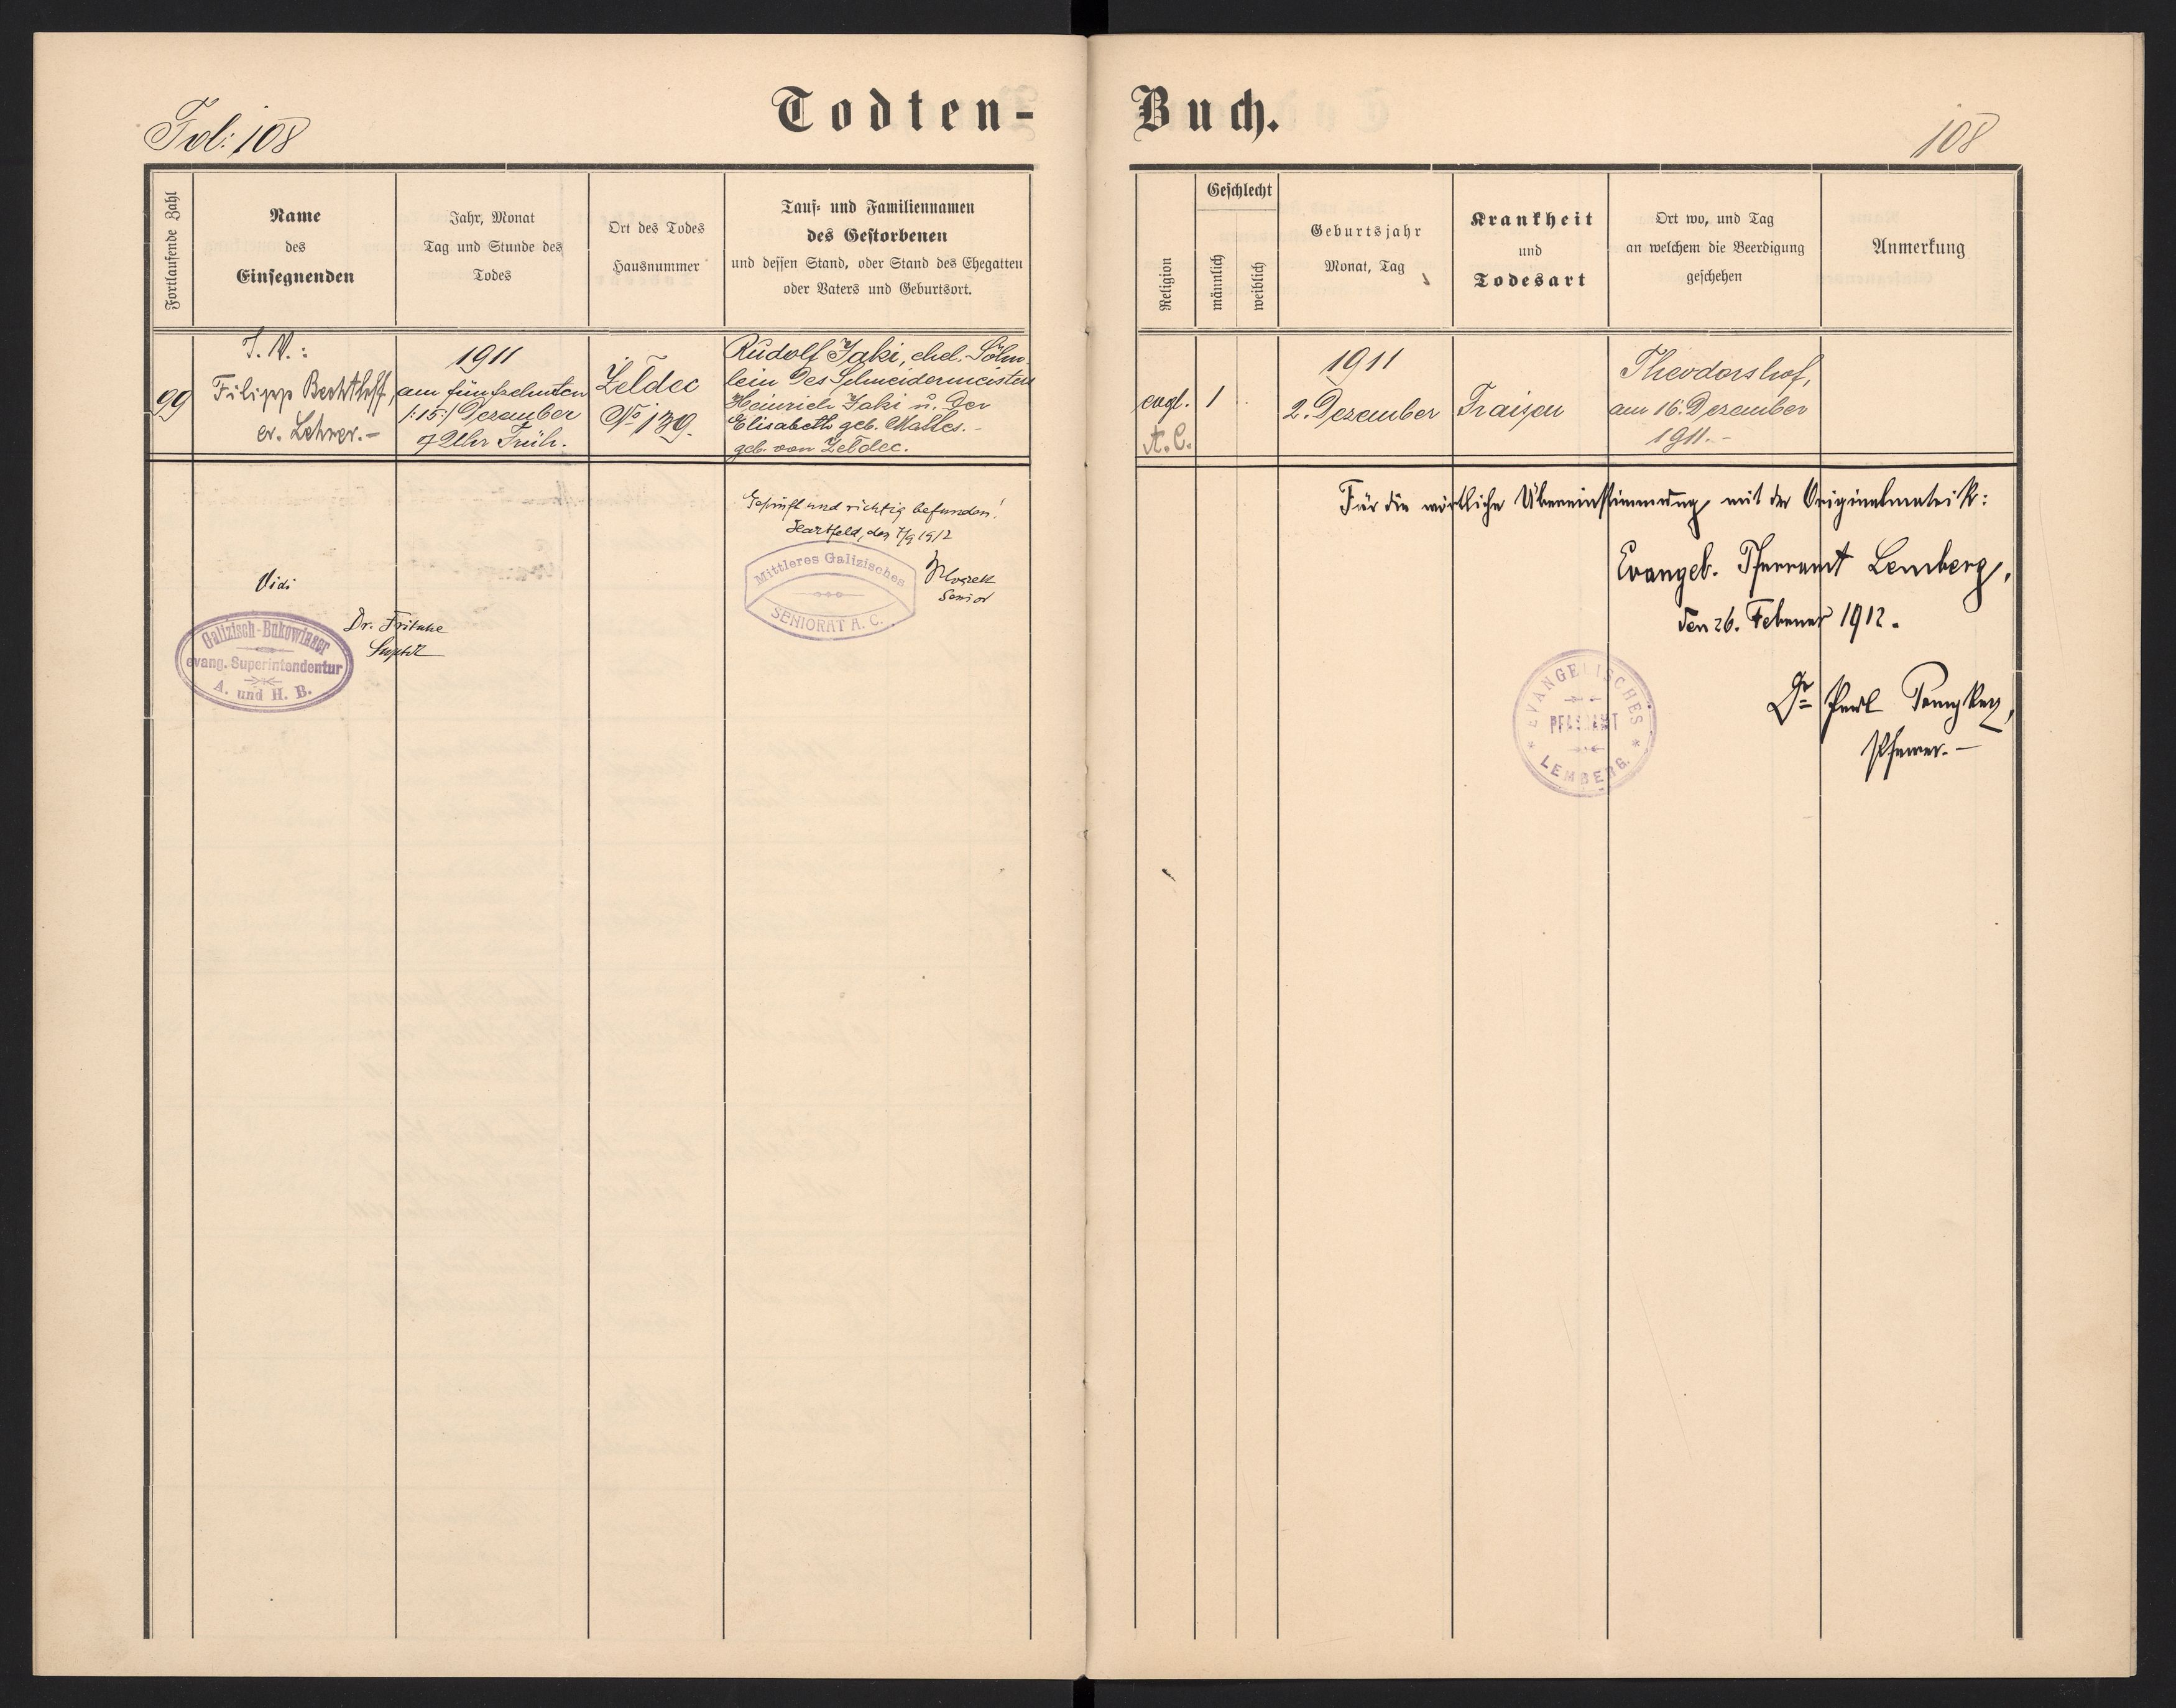 Fol: 108
Todten-Buch.
108
Fortlaufende Zahl
Name
des
Einsegnenden
Jahr, Monat
Tag und Stunde des
Todes
Ort des Todes
Hausnummer
Tauf- und Familiennamen
des Gestorbenen
und dessen Stand, oder Stand des Ehegatten
oder Vaters und Geburtsort.
Religion
Geschlecht
männlich
weiblich
Geburtsjahr
Monat, Tag
Krankheit
und
Todesart
Ort wo, und Tag
an welchem die Beerdigung
geschehen
Anmerkung
99
I. V.:
Filipp Bechtloff,
ev. Lehrer.-
1911
am fünfzehnten
/:15:/ Dezember
7 Uhr Früh.
Żeldec
No 139.
Rudolf Jaki, ehel. Söhn
lein des Schneidermeisters
Heinrich Jaki u. der
Elisabeth geb. Mattes.-
geb. von Żeldec.
evgl.
A.C.
1
1911
2. Dezember
Fraisen
Theodorshof,
am 16. Dezember
1911.-
Geprüft und richtig befunden!
Hartfeld, den 7/9 1912
Mittleres Galizisches
SENIORAT A. C.
Senior
Vidi
Dr. Fritsche
Suptdt
Galizisch-Bukowinaer
evang. Superintendentur
A. und H. B.
Für die wörtliche Übereinstimmung mit der Originalmatrik:
Evangel. Pfarramt Lemberg,
den 26. Februar 1912.
EVANGELISCHES
PFARRAMT
LEMBERG.
Dr
Pfarrer.-